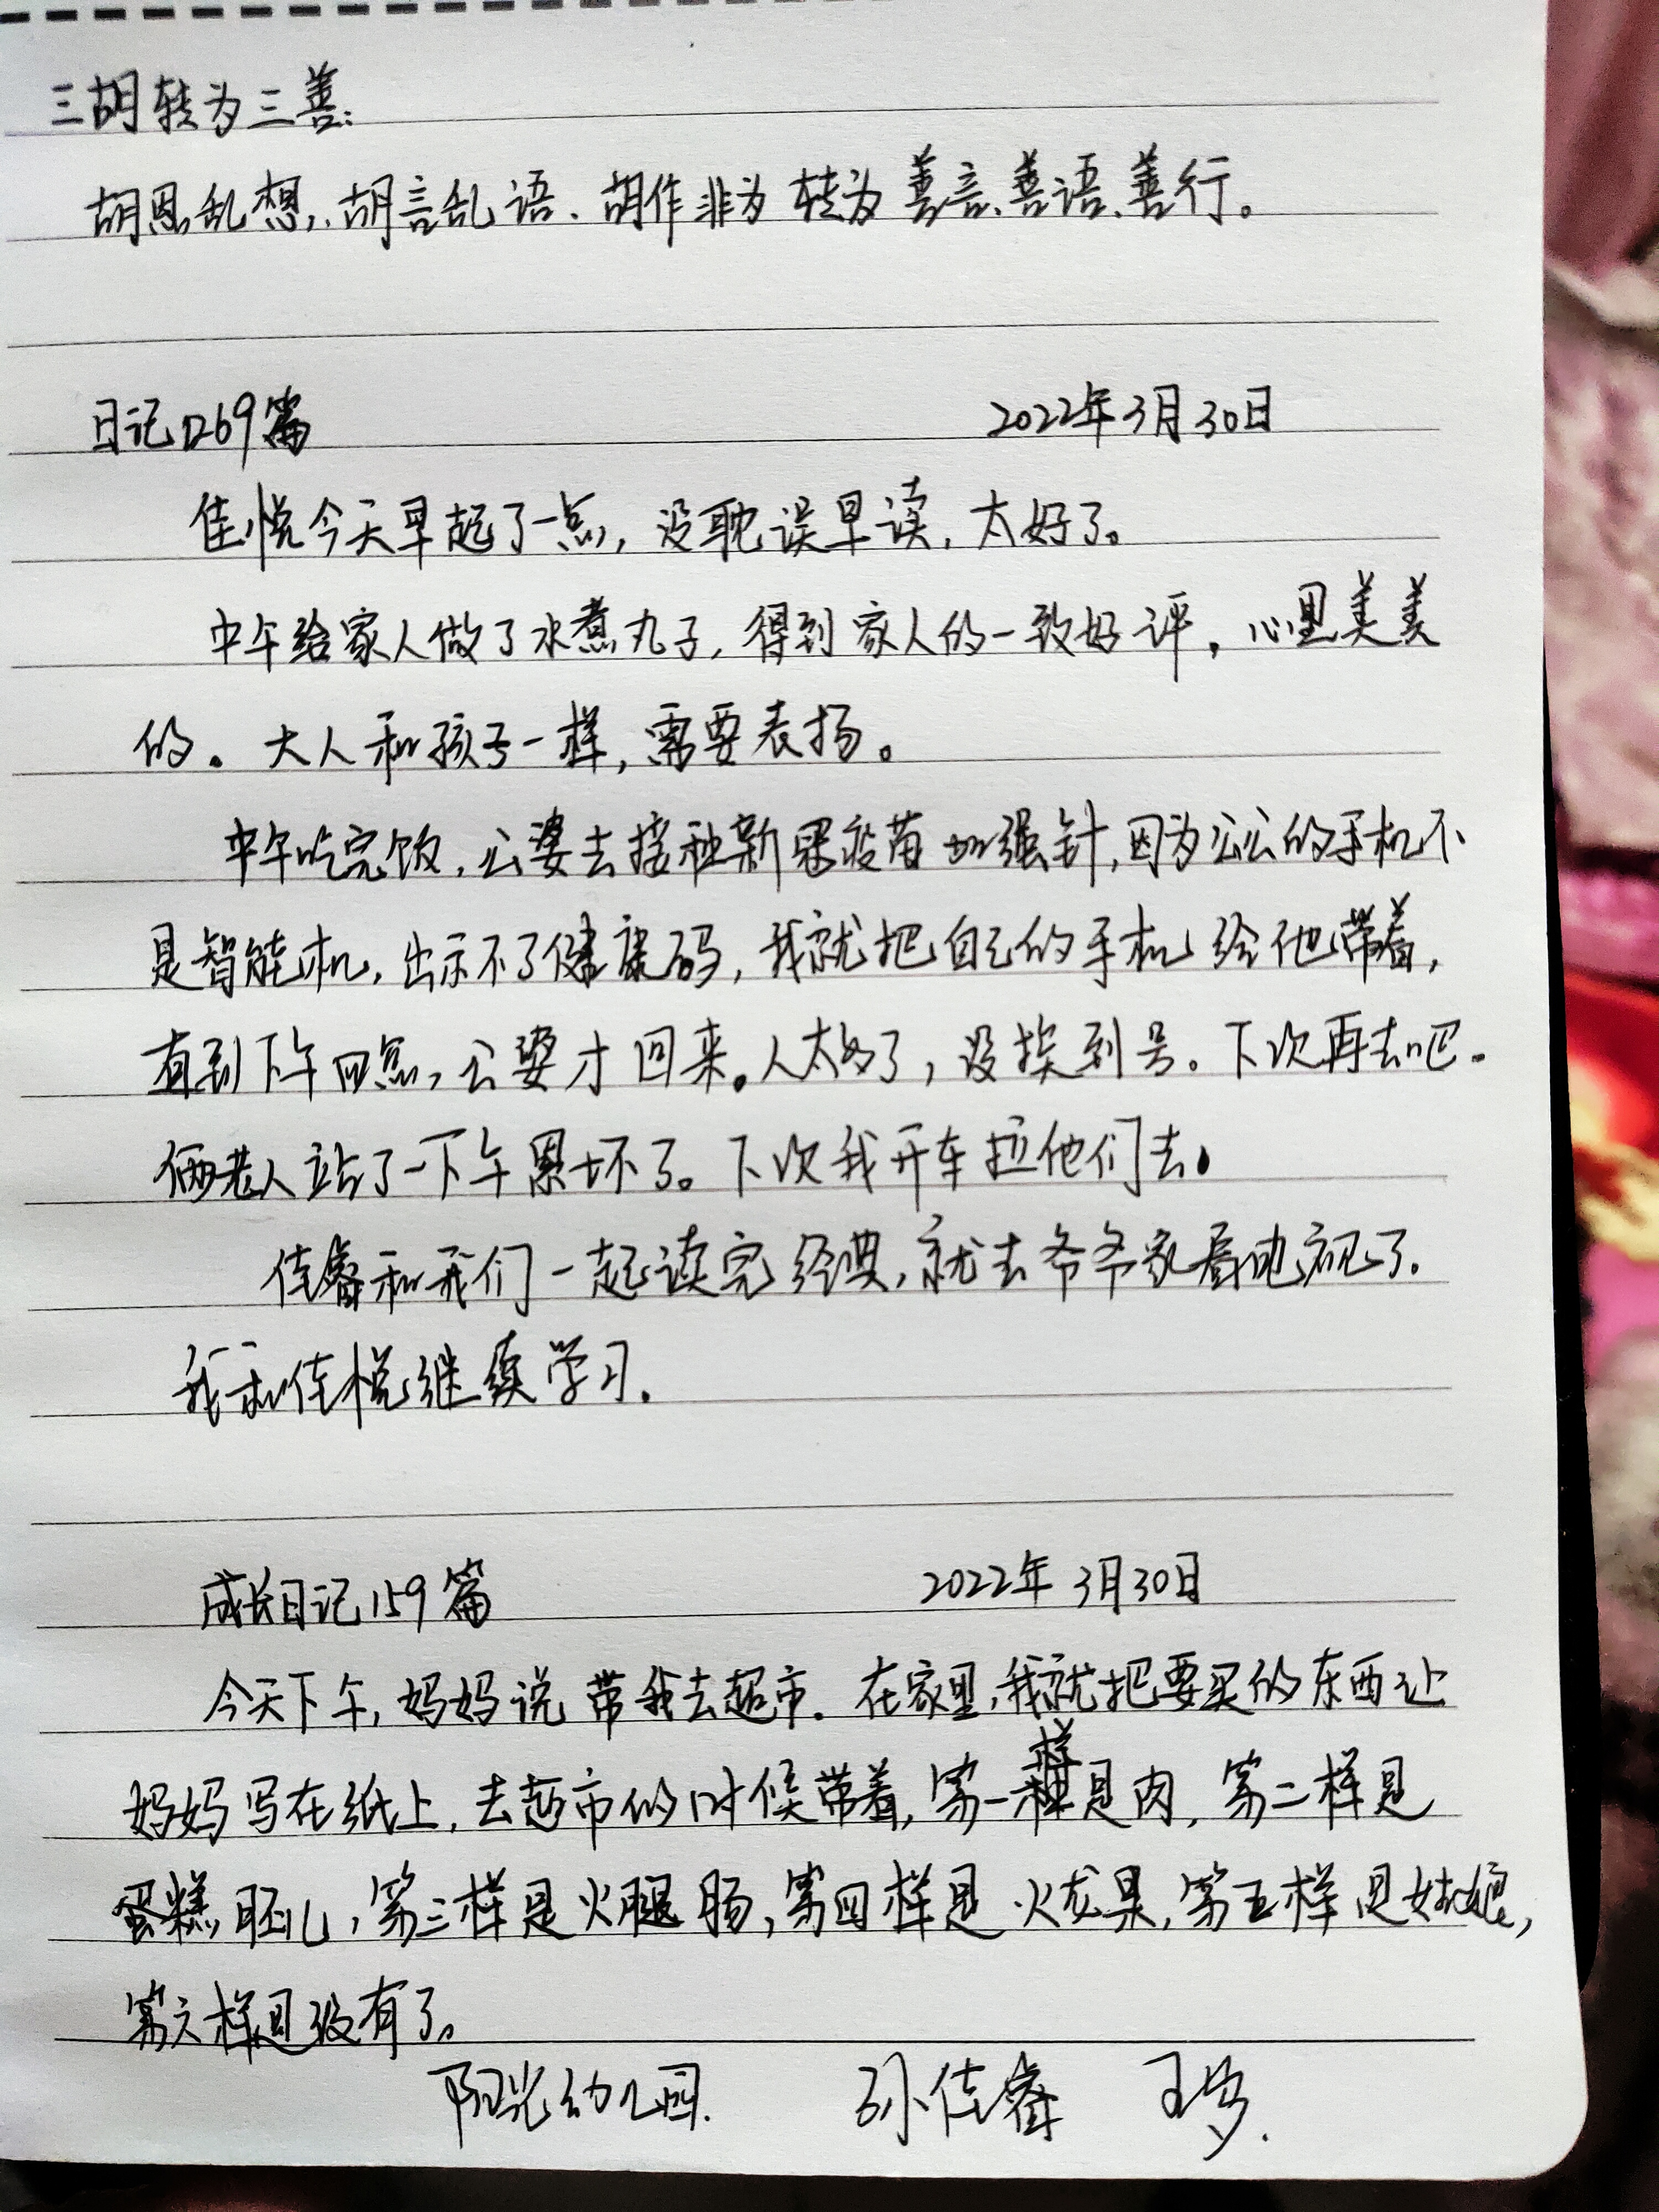 三胡转为三善:
胡思乱想,胡言乱语、胡作非为 转为 善言、善语、善行。
日记1269篇 2022年3月30日
佳悦今天早起了一点,没耽误早读,太好了。
中午给家人做了水煮丸子,得到家人的一致好评,心里美美
的。大人和孩子一样,需要表扬。
中午吃完饭,公婆去接种新冠疫苗加强针,因为公公的手机不
是智能机,出示不了健康码,我就把自己的手机给他带着,
直到下午四点,公婆才回来。人太多了,没挨到号。下次再去吧。
俩老人站了一下午累坏了。下次我开车拉他们去。
佳睿和我们一起读完经典,就去爷爷家看电视了。
我和佳悦继续学习。
成长日记159篇 2022年3月30日
今天下午,妈妈说带我去超市。在家里,我就把要买的东西让
妈妈写在纸上,去超市的时候带着,第一样是肉,第二样是
蛋糕胚儿,第三样是火腿肠,第四样是火龙果,第五样是姑娘,
第六样是没有了。
阳光幼儿园. 孙佳睿 5岁.